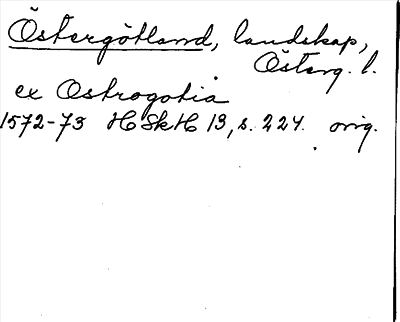 Östergötland, landskap,
Österg. l.
ex Ostrogotia
1572-73 HSkH 13, s. 224. orig.